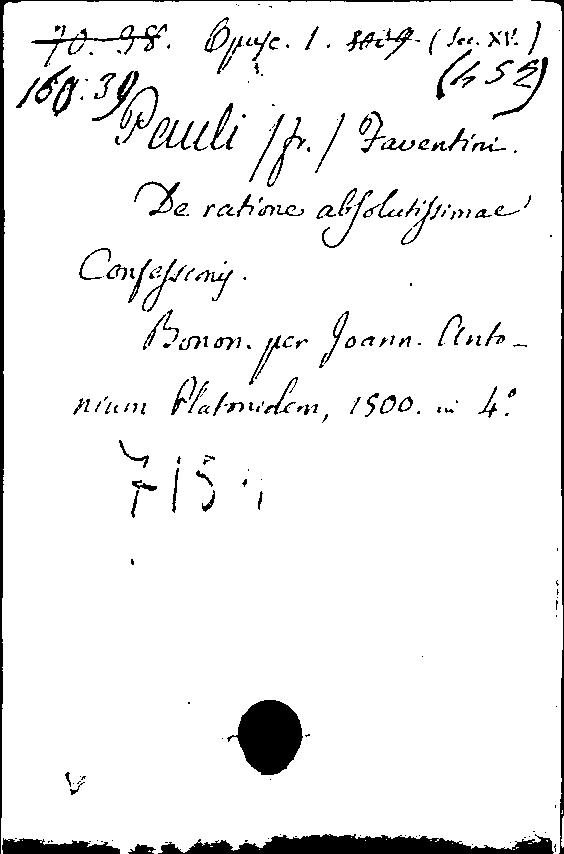 70. 38. Opusc. 1. (Sec. XV.)
160.39 (452)
Pauli /fr./ Faventini.
De ratione absolutissimae
Confessionis.
Bonon. per Joann. Anto-
nium Platonidem, 1500. in 4.°
715